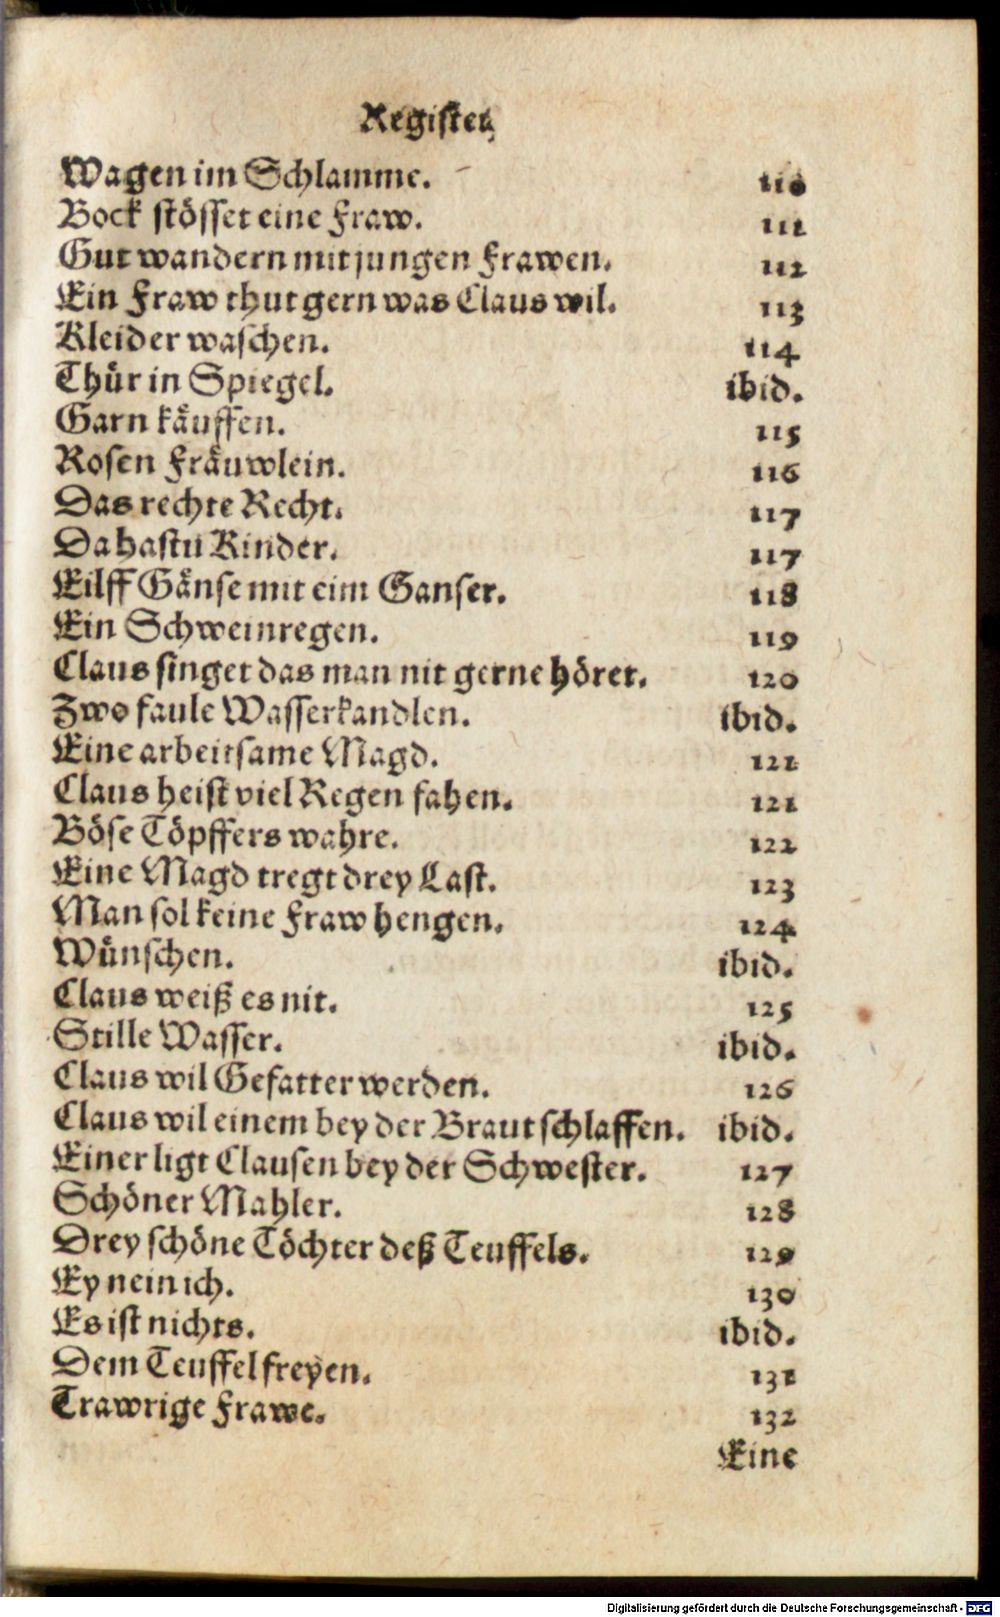 Register
Wagen im Schlamme. 110
Bock stösset eine Fraw. 111
Gut wandern mit jungen Frawen. 112
Ein Fraw thut gern was Claus wil. 113
Kleider waschen. 114
Thür in Spiegel. ibid.
Garn käuffen. 115
Rosen Fräuwlein. 116
Das rechte Recht. 117
Da hastu Kinder. 117
Eilff Gänse mit eim Ganser. 118
Ein Schweinregen. 119
Claus singet das man nit gerne höret. 120
Zwo faule Wasserkandlen. ibid.
Eine arbeitsame Magd. 121
Claus heist viel Regen fahen. 121
Böse Töpffers wahre. 122
Eine Magd tregt drey Last. 123
Man sol keine Fraw hengen. 124
Wünschen. ibid.
Claus weiß es nit. 125
Stille Wasser. ibid.
Claus wil Gefatter werden. 126
Claus wil einem bey der Braut schlaffen. ibid.
Einer ligt Clausen bey der Schwester. 127
Schöner Mahler. 128
Drey schöne Töchter deß Teuffels. 129
Ey nein ich. 130
Es ist nichts. ibid.
Dem Teuffel freyen. 131
Trawrige Frawe. 132
Eine
Digitalisierung gefördert durch die Deutsche Forschungsgemeinschaft - DFG